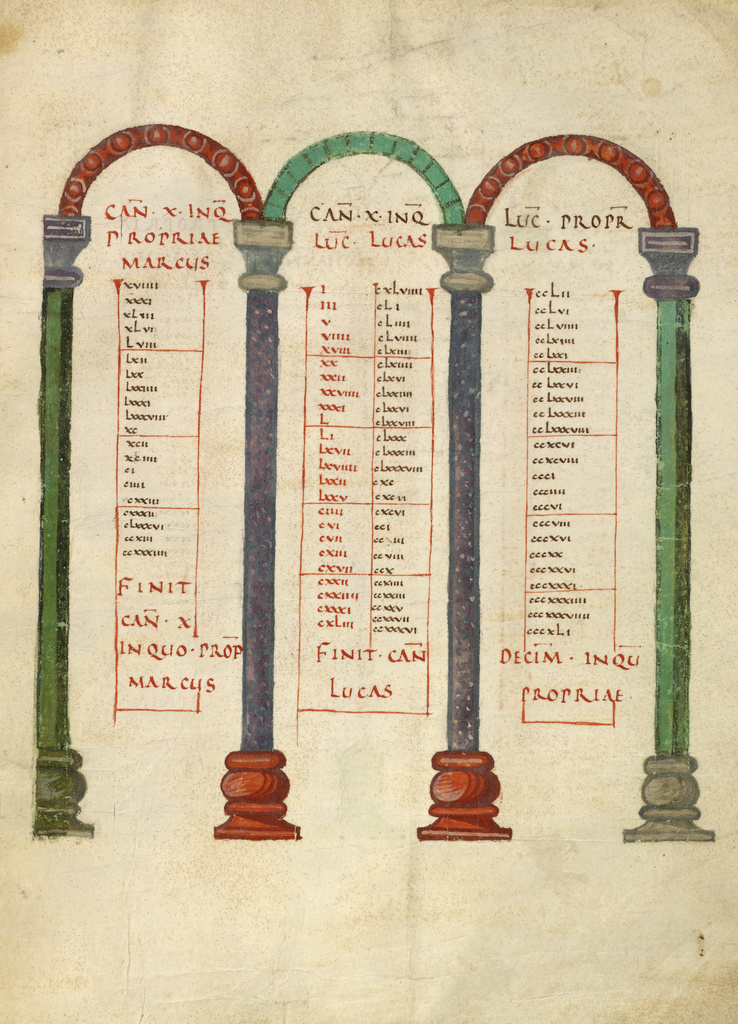 CAN̄ · X · INQ̄
PROPRIAE
MARCUS
xviiii
xxxi
xLiii
xLvi
Lviii
Lxii
Lxx
Lxxiiii
Lxxxi
Lxxxviii
xc
xcii
xciiii
ci
ciiii
cxxiii
cxxxii
cLxxxvi
ccxiii
ccxxxiiii
FINIT
CAN̄ · X
INQUO · PROP̄
MARCUS
CAN̄ · X · INQ̄
LUC̄ · LUCAS
I cxLviiii
III cLi
V cLiiii
viiii cLviiii
xviii cLxiii
xx cLxiiii
xxii cLxvi
xxviiii cLxxiiii
xxxi cLxxvi
L cLxxviii
Li cLxxx
Lxvii cLxxxiii
Lxviiii cLxxxviii
Lxxii cxc
Lxxv cxcii
ciiii cxcvi
cvi cci
cvii
cxiii ccviii
cxvii ccx
cxxii ccxiiii
cxxiiii ccxxiii
cxxxi ccxxv
cxLiii ccxxvii
ccxxxvi
FINIT · CAN̄
LUCAS
LUC̄ · PROPR̄
LUCAS ·
ccLii
ccLvi
ccLviiii
ccLxiiii
ccLxxi
ccLxxiii
ccLxxvi
ccLxxviii
ccLxxxiii
ccLxxxviii
ccxcvi
ccxcviii
ccci
ccciiii
cccvi
cccviii
cccxvi
cccxx
cccxxvi
cccxxxi
cccxxxiiii
cccxxxviiii
cccxLi
DECIM̄ · INQŪ
PROPRIAE ·